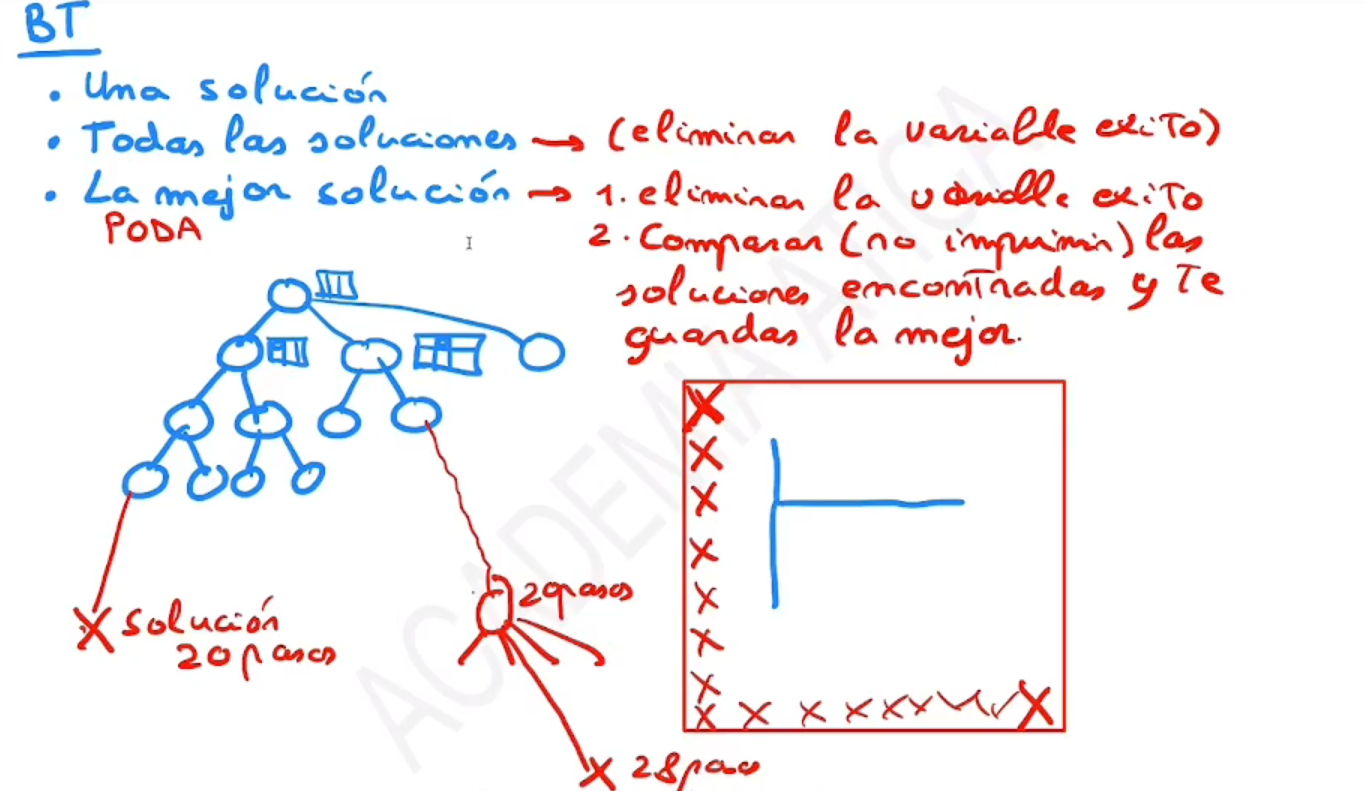 BT
• Una solución
• Todas las soluciones → (eliminar la variable exito)
• La mejor solución → 1. eliminar la variable exito
PODA
2. Comparar (no imprimir) las
soluciones encontradas y te
guardas la mejor.
20pasos
X solución
20 pasos
X 28paso
ACADEMIA ATICA